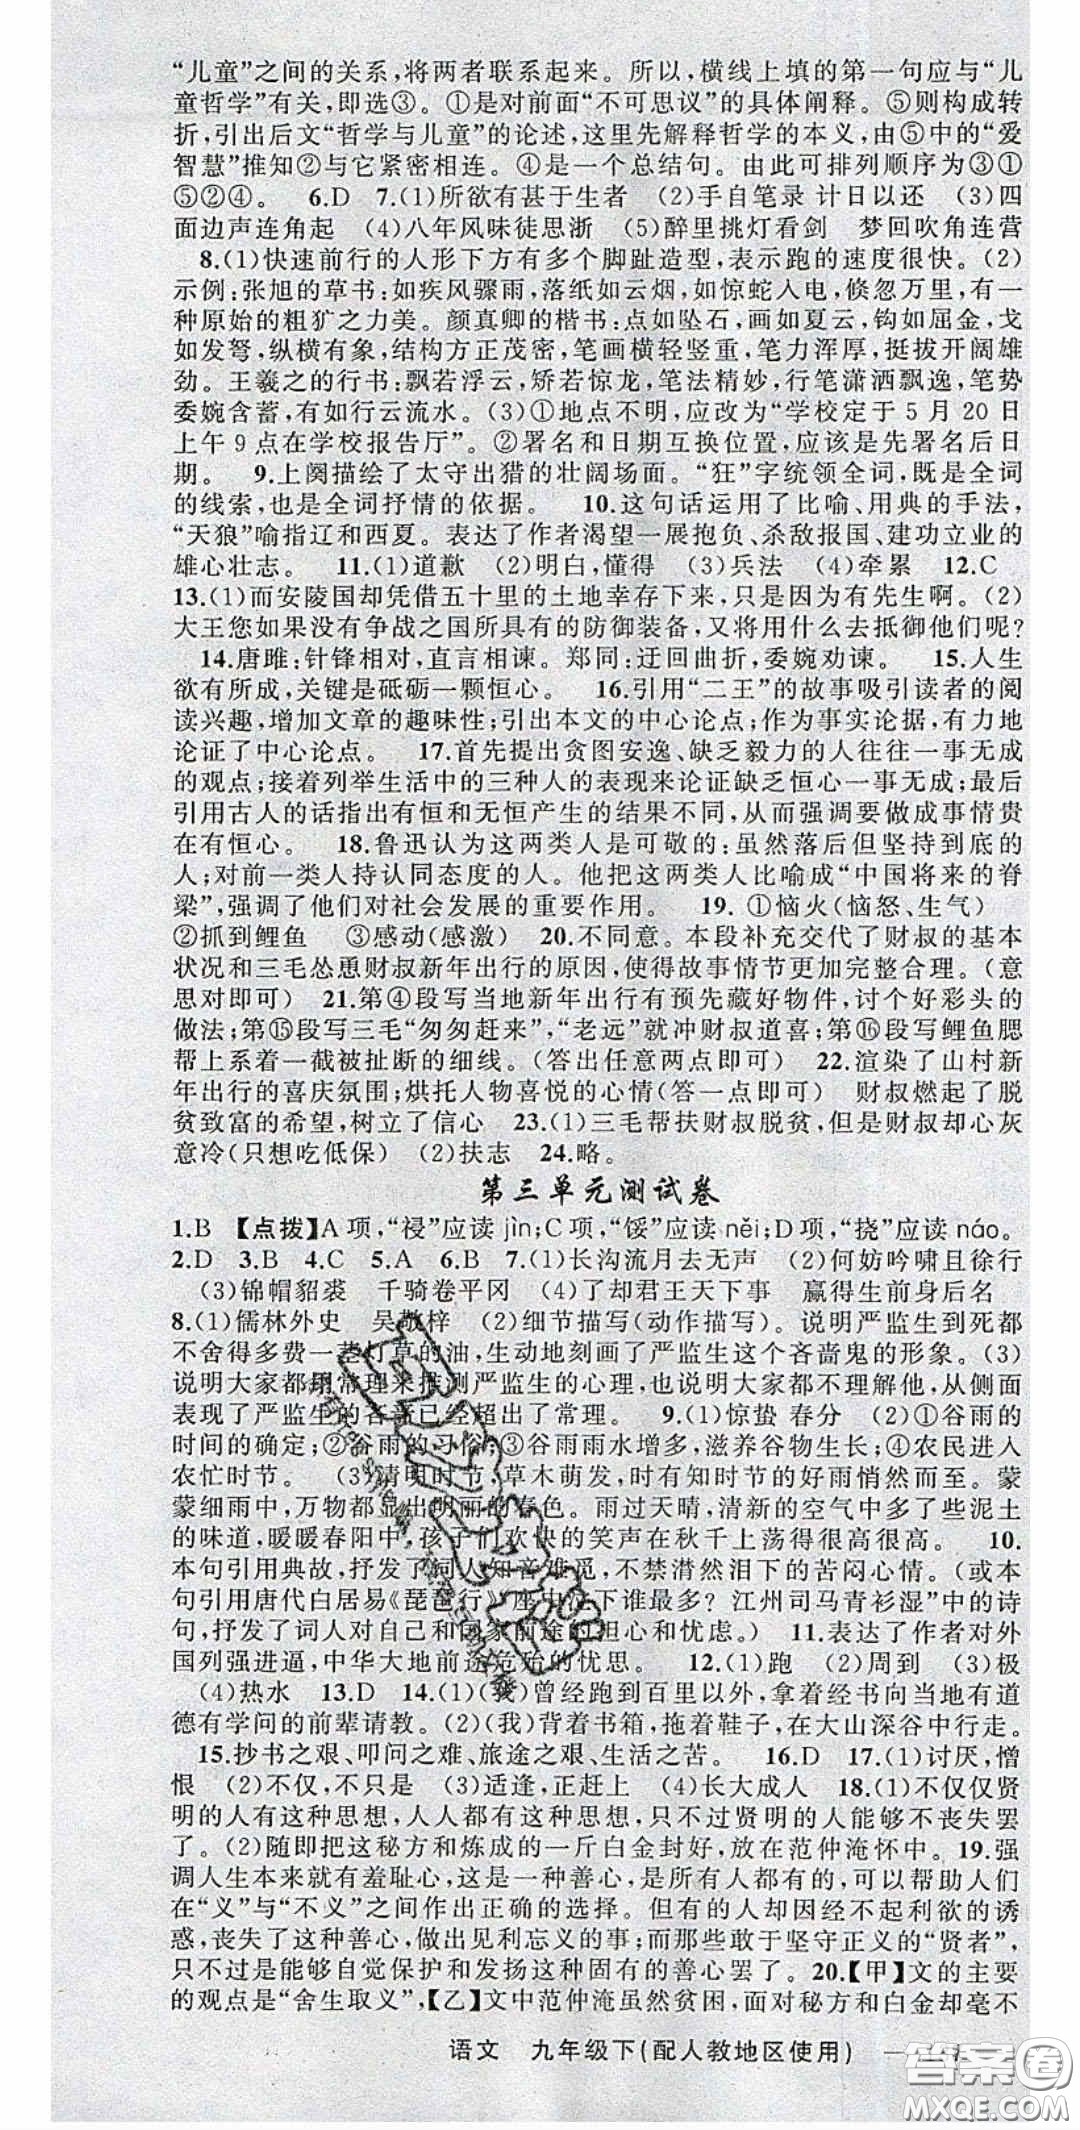 “儿童”之间的关系,将两者联系起来。所以,横线上填的第一句应与“儿
童哲学”有关,即选③。①是对前面“不可思议”的具体阐释。⑤则构成转
折,引出后文“哲学与儿童”的论述,这里先解释哲学的本义,由⑤中的“爱
智慧”推知②与它紧密相连。④是一个总结句。由此可排列顺序为③①
⑤②④。 6.D 7.(1)所欲有甚于生者 (2)手自笔录 计日以还 (3)四
面边声连角起 (4)八年风味徒思浙 (5)醉里挑灯看剑 梦回吹角连营
8.(1)快速前行的人形下方有多个脚趾造型,表示跑的速度很快。(2)
示例:张旭的草书:如疾风骤雨,落纸如云烟,如惊蛇入电,倏忽万里,有一
种原始的粗犷之力美。颜真卿的楷书:点如坠石,画如夏云,钩如屈金,戈
如发弩,纵横有象,结构方正茂密,笔画横轻竖重,笔力浑厚,挺拔开阔雄
劲。王羲之的行书:飘若浮云,矫若惊龙,笔法精妙,行笔潇洒飘逸,笔势
委婉含蓄,有如行云流水。(3)①地点不明,应改为“学校定于5月20日
上午9点在学校报告厅”。②署名和日期互换位置,应该是先署名后日
期。 9.上阕描绘了太守出猎的壮阔场面。“狂”字统领全词,既是全词
的线索,也是全词抒情的依据。 10.这句话运用了比喻、用典的手法,
“天狼”喻指辽和西夏。表达了作者渴望一展抱负、杀敌报国、建功立业的
雄心壮志。 11.(1)道歉 (2)明白,懂得 (3)兵法 (4)牵累 12.C
13.(1)而安陵国却凭借五十里的土地幸存下来,只是因为有先生啊。(2)
大王您如果没有争战之国所具有的防御装备,又将用什么去抵御他们呢?
14.唐雎:针锋相对,直言相谏。郑同:迂回曲折,委婉劝谏。 15.人生
欲有所成,关键是砥砺一颗恒心。 16.引用“二王”的故事吸引读者的阅
读兴趣,增加文章的趣味性;引出本文的中心论点;作为事实论据,有力地
论证了中心论点。 17.首先提出贪图安逸、缺乏毅力的人往往一事无成
的观点;接着列举生活中的三种人的表现来论证缺乏恒心一事无成;最后
引用古人的话指出有恒和无恒产生的结果不同,从而强调要做成事情贵
在有恒心。 18.鲁迅认为这两类人是可敬的:虽然落后但坚持到底的
人;对前一类人持认同态度的人。他把这两类人比喻成“中国将来的脊
梁”,强调了他们对社会发展的重要作用。 19.①恼火(恼怒、生气)
②抓到鲤鱼 ③感动(感激) 20.不同意。本段补充交代了财叔的基本
状况和三毛怂恿财叔新年出行的原因,使得故事情节更加完整合理。(意
思对即可) 21.第④段写当地新年出行有预先藏好物件,讨个好彩头的
做法;第⑮段写三毛“匆匆赶来”,“老远”就冲财叔道喜;第⑯段写鲤鱼腮
帮上系着一截被扯断的细线。(答出任意两点即可) 22.渲染了山村新
年出行的喜庆氛围;烘托人物喜悦的心情(答一点即可) 财叔燃起了脱
贫致富的希望,树立了信心 23.(1)三毛帮扶财叔脱贫,但是财叔却心灰
意冷(只想吃低保) (2)扶志 24.略。
第三单元测试卷
1.B 【点拨】A项,“祲”应读jìn;C项,“馁”应读něi;D项,“挠”应读náo。
2.D 3.B 4.C 5.A 6.B 7.(1)长沟流月去无声 (2)何妨吟啸且徐行
(3)锦帽貂裘 千骑卷平冈 (4)了却君王天下事 赢得生前身后名
8.(1)儒林外史 吴敬梓 (2)细节描写(动作描写)。说明严监生到死都
不舍得多费一茎灯草的油,生动地刻画了严监生这个吝啬鬼的形象。(3)
说明大家都用常理来推测严监生的心理,也说明大家都不理解他,从侧面
表现了严监生的吝啬已经超出了常理。 9.(1)惊蛰 春分 (2)①谷雨的
时间的确定;②谷雨的习俗;③谷雨雨水增多,滋养谷物生长;④农民进入
农忙时节。 (3)清明时节,草木萌发,时有知时节的好雨悄然而至。蒙
蒙细雨中,万物都显出明丽的春色。雨过天晴,清新的空气中多了些泥土
的味道,暖暖春阳中,孩子们欢快的笑声在秋千上荡得很高很高。 10.
本句引用典故,抒发了词人知音难觅,不禁潸然泪下的苦闷心情。(或本
句引用唐代白居易《琵琶行》“座中泣下谁最多?江州司马青衫湿”中的诗
句,抒发了词人对自己和国家前途的担心和忧虑。) 11.表达了作者对外
国列强进逼,中华大地前途危殆的忧思。 12.(1)跑 (2)周到 (3)极
(4)热水 13.D 14.(1)(我)曾经跑到百里以外,拿着经书向当地有道
德有学问的前辈请教。(2)(我)背着书箱,拖着鞋子,在大山深谷中行走。
15.抄书之艰、叩问之难、旅途之艰、生活之苦。 16.D 17.(1)讨厌,憎
恨 (2)不仅,不只是 (3)适逢,正赶上 (4)长大成人 18.(1)不仅仅贤
明的人有这种思想,人人都有这种思想,只不过贤明的人能够不丧失罢
了。(2)随即把这秘方和炼成的一斤白金封好,放在范仲淹怀中。 19.强
调人生本来就有羞耻心,这是一种善心,是所有人都有的,可以帮助人们
在“义”与“不义”之间作出正确的选择。但有的人却因经不起利欲的诱
惑,丧失了这种善心,做出见利忘义的事;而那些敢于坚守正义的“贤者”,
只不过是能够自觉保护和发扬这种固有的善心罢了。20.【甲】文的主要
的观点是“舍生取义”,【乙】文中范仲淹虽然贫困,面对秘方和白金却毫不
语文 九年级下(配人教地区使用)
答案圈
MXQE.COM